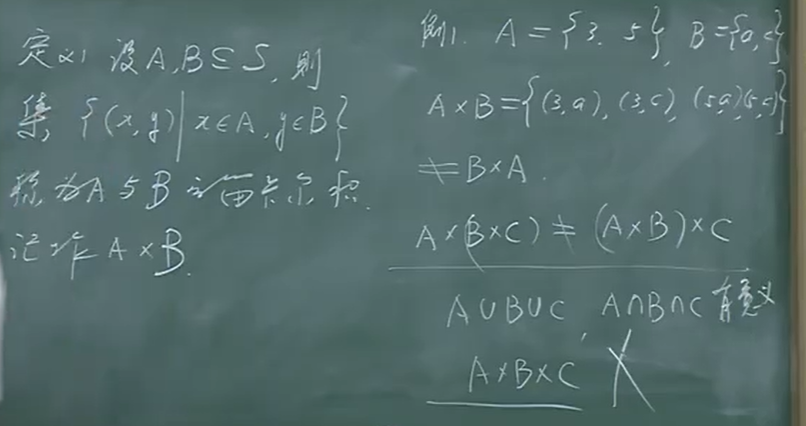 定义1 设A,B⊆S,则
集 {(x,y)|x∈A,y∈B}
称为A与B的笛卡尔积.
记作A×B.
例1. A={3. 5}, B={a,c}
A×B={(3,a),(3,c),(5,a)(5,c)}
≠B×A.
A×(B×C)≠(A×B)×C
A∪B∪C, A∩B∩C 有意义
A×B×C X